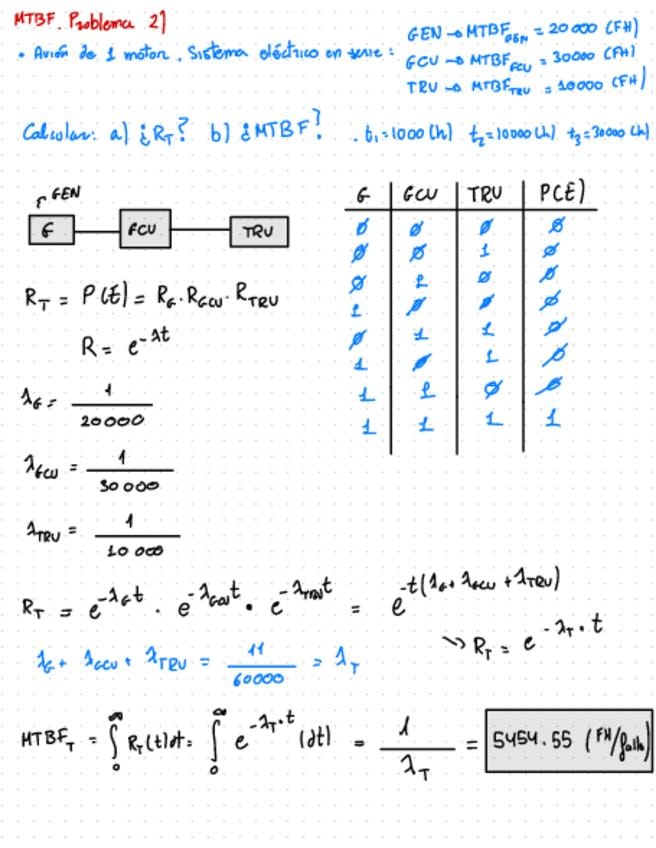 MTBF. Problema 2)
• Avión de 1 motor. Sistema eléctrico en serie:
GEN → MTBF_GEN = 20000 (FH)
GCU → MTBF_GCU = 30000 (FH)
TRU → MTBF_TRU = 10000 (FH)
Calcular: a) ¿R_T? b) ¿MTBF? . t₁=1000 (h) t₂=10000 (h) t₃=30000 (h)
GEN
G GCU TRU
G GCU TRU P(E)
0 0 0 0
0 0 1 0
0 1 0 0
1 0 0 0
0 1 1 0
1 0 1 0
1 1 0 0
1 1 1 1
R_T = P(E) = R_G · R_GCU · R_TRU
R = e^{-λt}
λ_G = 1/20000
λ_GCU = 1/30000
λ_TRU = 1/10000
R_T = e^{-λ_G t} · e^{-λ_GCU t} · e^{-λ_TRU t} = e^{-t(λ_G + λ_GCU + λ_TRU)}
↳ R_T = e^{-λ_T · t}
λ_G + λ_GCU + λ_TRU = 11/60000 = λ_T
MTBF_T = ∫₀^∞ R_T(t)dt = ∫₀^∞ e^{-λ_T · t} (dt) = 1/λ_T = 5454.55 (FH/fallo)